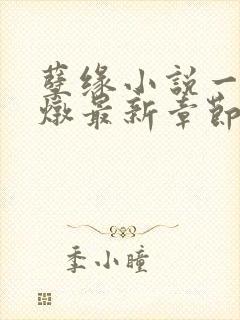 孽缘小説一
燉最新章節
季小瞳